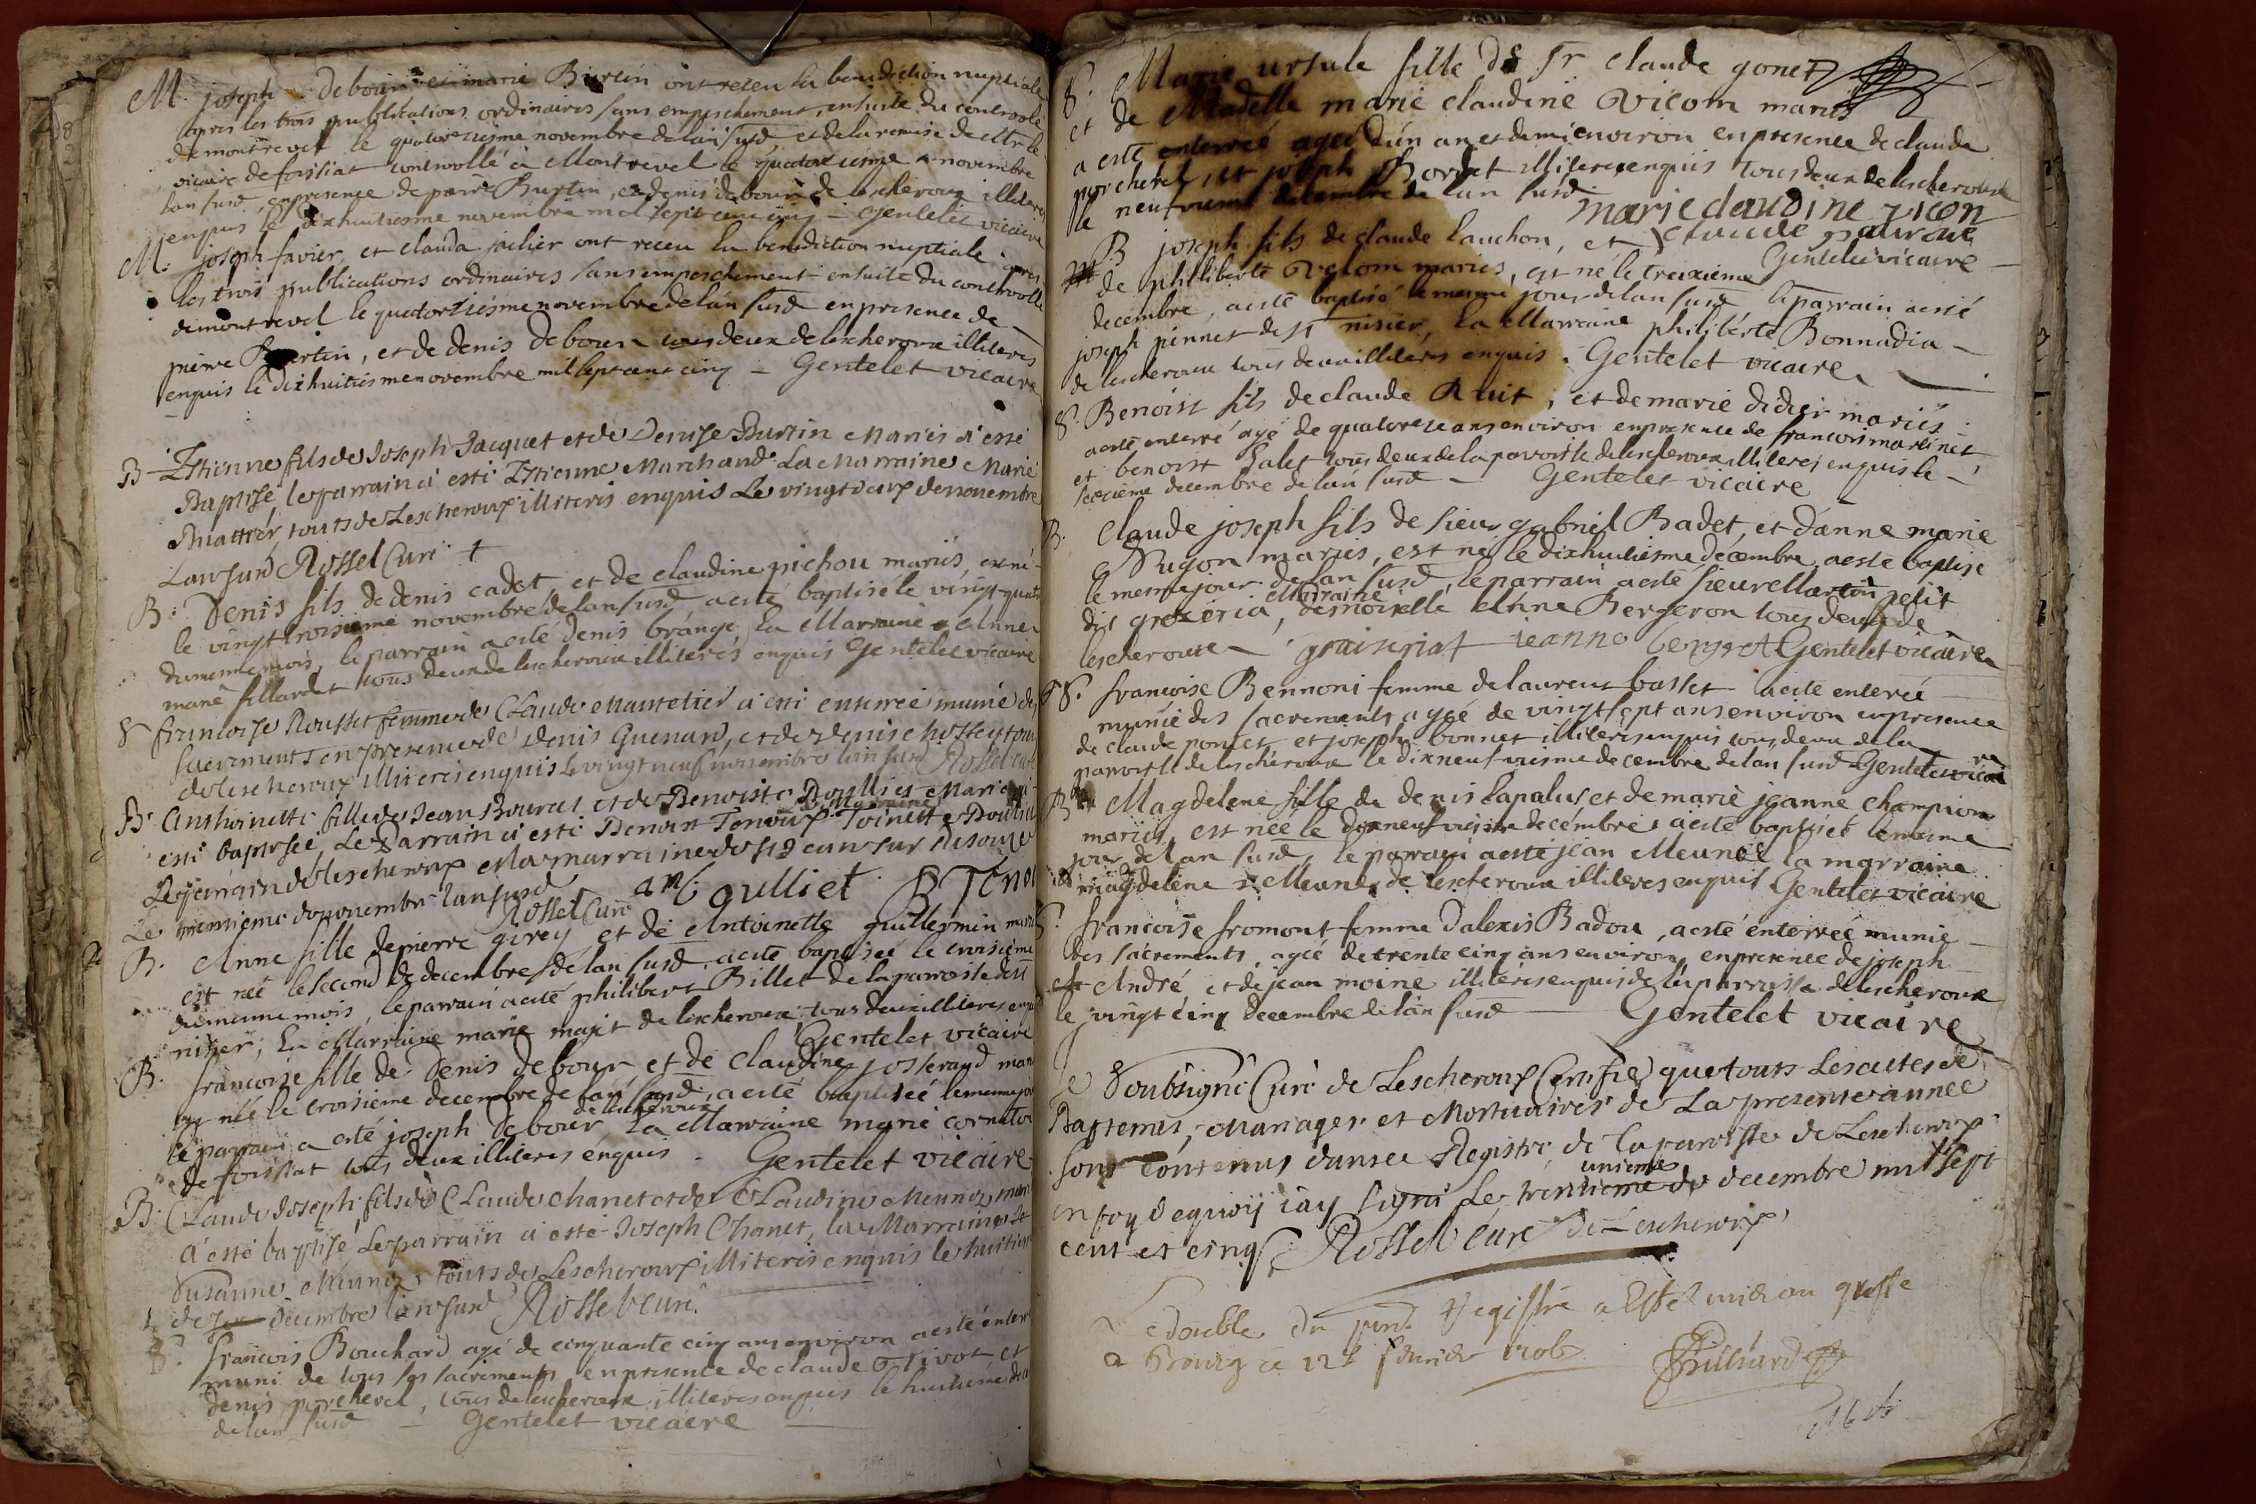 M. joseph debour et marie Burtin ont receu la benediction nuptiale
apres les trois publications ordinaires sans empeschement ensuite du controole
de montrevel le quatorzieme novembre de lan susd et de la remise de
vicaire de foissiat controollé à Montrevel le quatorzieme novembre
lan susd, en presence de pierre Burtin, et denis debour de lescheroux illiteres
enquis le dixhuitiesme novembre mil sept cent cinq – Gentelet vicaire
M. joseph favier, et clauda jailier ont receu la benediction nuptiale apres
les trois publications ordinaires sans empeschement ensuite du controolle
de montrevel le quatorziesme novembre de lan susd en presence de
pierre Burtin, et de denis Debour tous deux de lescheroux illiteres
enquis le dixhuitiesme novembre mil sept cent cinq – Gentelet vicaire
B – Estienne fils de Joseph Jacquet et de Denise Burtin Mariés a esté
Baptisé, le parrain a esté Estienne Marchand La Marraine Marie
touts de Lescheroux illiteris enquis Le vingt deux de novembre
Lan susd Rossel Curé
B. Denis fils de denis cadet et de claudine pichou mariés, est né
le vingt troisieme novembre de lan susd, a esté baptisé le vingt quatre
du mesme mois, le parrain a esté denis brange, La Marraine Anne
marie fillardet tous deux de lescheroux illiteres enquis Gentelet vicaire
S francoise Rousset femme de Claude Mauretier a esté enterrée munie des
sacrements en presence de Denis Guenard, et de denis
de Lescheroux illiteris enquis le vingt neuf novembre lan susd Rossel curé
B. Anthoinette fille de Jean Bouvret et de Benoiste Roullies Mariés
esté baptisée, Le Parrain a esté Benoist Tenoux Toinette
la Marraine
Le trentieme de novembre lan susd
Rossel Curé ant. goulliet B Tenou
B. Anne fille de pierre girey et de Antoinette guillermin mariés
est née le second de decembre de lan susd, a esté baptisée le troisieme
du mesme mois, le parrain a esté philibert Billet de la paroisse de st
nizier, La Marraine marie majit de lescheroux, tous deux illiteres enquis
Gentelet vicaire
B. francoise fille de Denis debour et de Claudine josserand mariés
est née le troisieme decembre de lan susd, a esté baptisée le mesme jour
le parrain a esté joseph Debour de lescheroux La Marraine marie cornaton
de foissiat tous deux illiteres enquis. Gentelet vicaire
B. Claude Joseph fils de Claude Chanet et de Claudine Meunoz mariés
a esté baptisé Le parrain a esté Joseph Chanet, La Marraine
Susanne Meunoz touts de Lescheroux illiteris enquis le huitieme
de decembre lan susd Rossel curé
S. francois Bouchard agé de cinquante cinq ans environ a esté enterré
muni de tous ses sacrements en presence de claude Trivot et
denis porcherel, tous de lescheroux illiteres enquis le huitieme dec
de lan susd – Gentelet vicaire
S. Marie ursule fille de sr claude gonet
et de Madelle marie claudine Vicom mariés
a esté enterrée agée dun an et demi environ en presence de claude
porcherel, et joseph Bordet illiteres enquis tous deux de lescheroux
le neufvieme decembre de lan susd
marie claudine vicon
Gentelet vicaire
B joseph fils de claude Cauchon, et
de philiberte Velom mariés, est né le treizieme
decembre, a esté baptisé le mesme jour de lan susd le parrain a esté
joseph pinnet de st nisier, La Marraine philiberte Bonnadia –
de lescheroux tous deux illiteres enquis. Gentelet vicaire
S. Benoist fils de claude Ruit, et de marie didier mariés
a esté enterré agé de quatorze ans environ en presence de francois martinet,
et benoist Galet tous deux de la paroisse de lescheroux illiteres enquis le –
seizieme decembre de lan susd – Gentelet vicaire
B. Claude joseph fils de sieur gabriel Badet, et danne marie
Nugon mariés, est né le dixhuitiesme decembre, a esté baptisé
le mesme jour de lan susd, le parrain a esté sieur Marton petit
dit grezeria, marraine demoiselle Anne Bergeron tous deux de
lescheroux graiseriat ieanne Gentelet vicaire
S. francoise Bennoni femme de laurent basset a esté enterée
munie des sacrements agée de vingt sept ans environ en presence
de claude poncet et joseph bonnet illiteres enquis tous deux de la
paroisse de lescheroux le dixneufvieme decembre de lan susd Gentelet vicaire
B. Magdelene fille de denis Lapalus et de marie jeanne Champion
mariés, est née le dixneufvieme decembre a esté baptisée le mesme
jour de lan susd, le parrain a esté jean Meunoz la marraine
magdelene Meunoz de lescheroux illiteres enquis Gentelet vicaire
S. francoise fromont femme dalexis Badou, a esté enterrée munie
des sacrements, agée de trente cinq ans environ, en presence de joseph
André et de jean moine illiteres enquis de la paroisse de lescheroux
le vingt cinq decembre de lan susd – Gentelet vicaire
Je Soubsigné Curé de Lescheroux Certifie que touts Les actes de
Baptemes, Mariages et Mortuaires de La presente année
sont contenus dans ce Registre de la paroisse de Lescheroux
en foy de quoy i'ay signé Le trentieme unieme de decembre mil sept
cent et cinq. Rossel curé de Lescheroux
Le double du pnt Registre a Esté mis au greffe
a Bourg ce 12e fevrier 1706